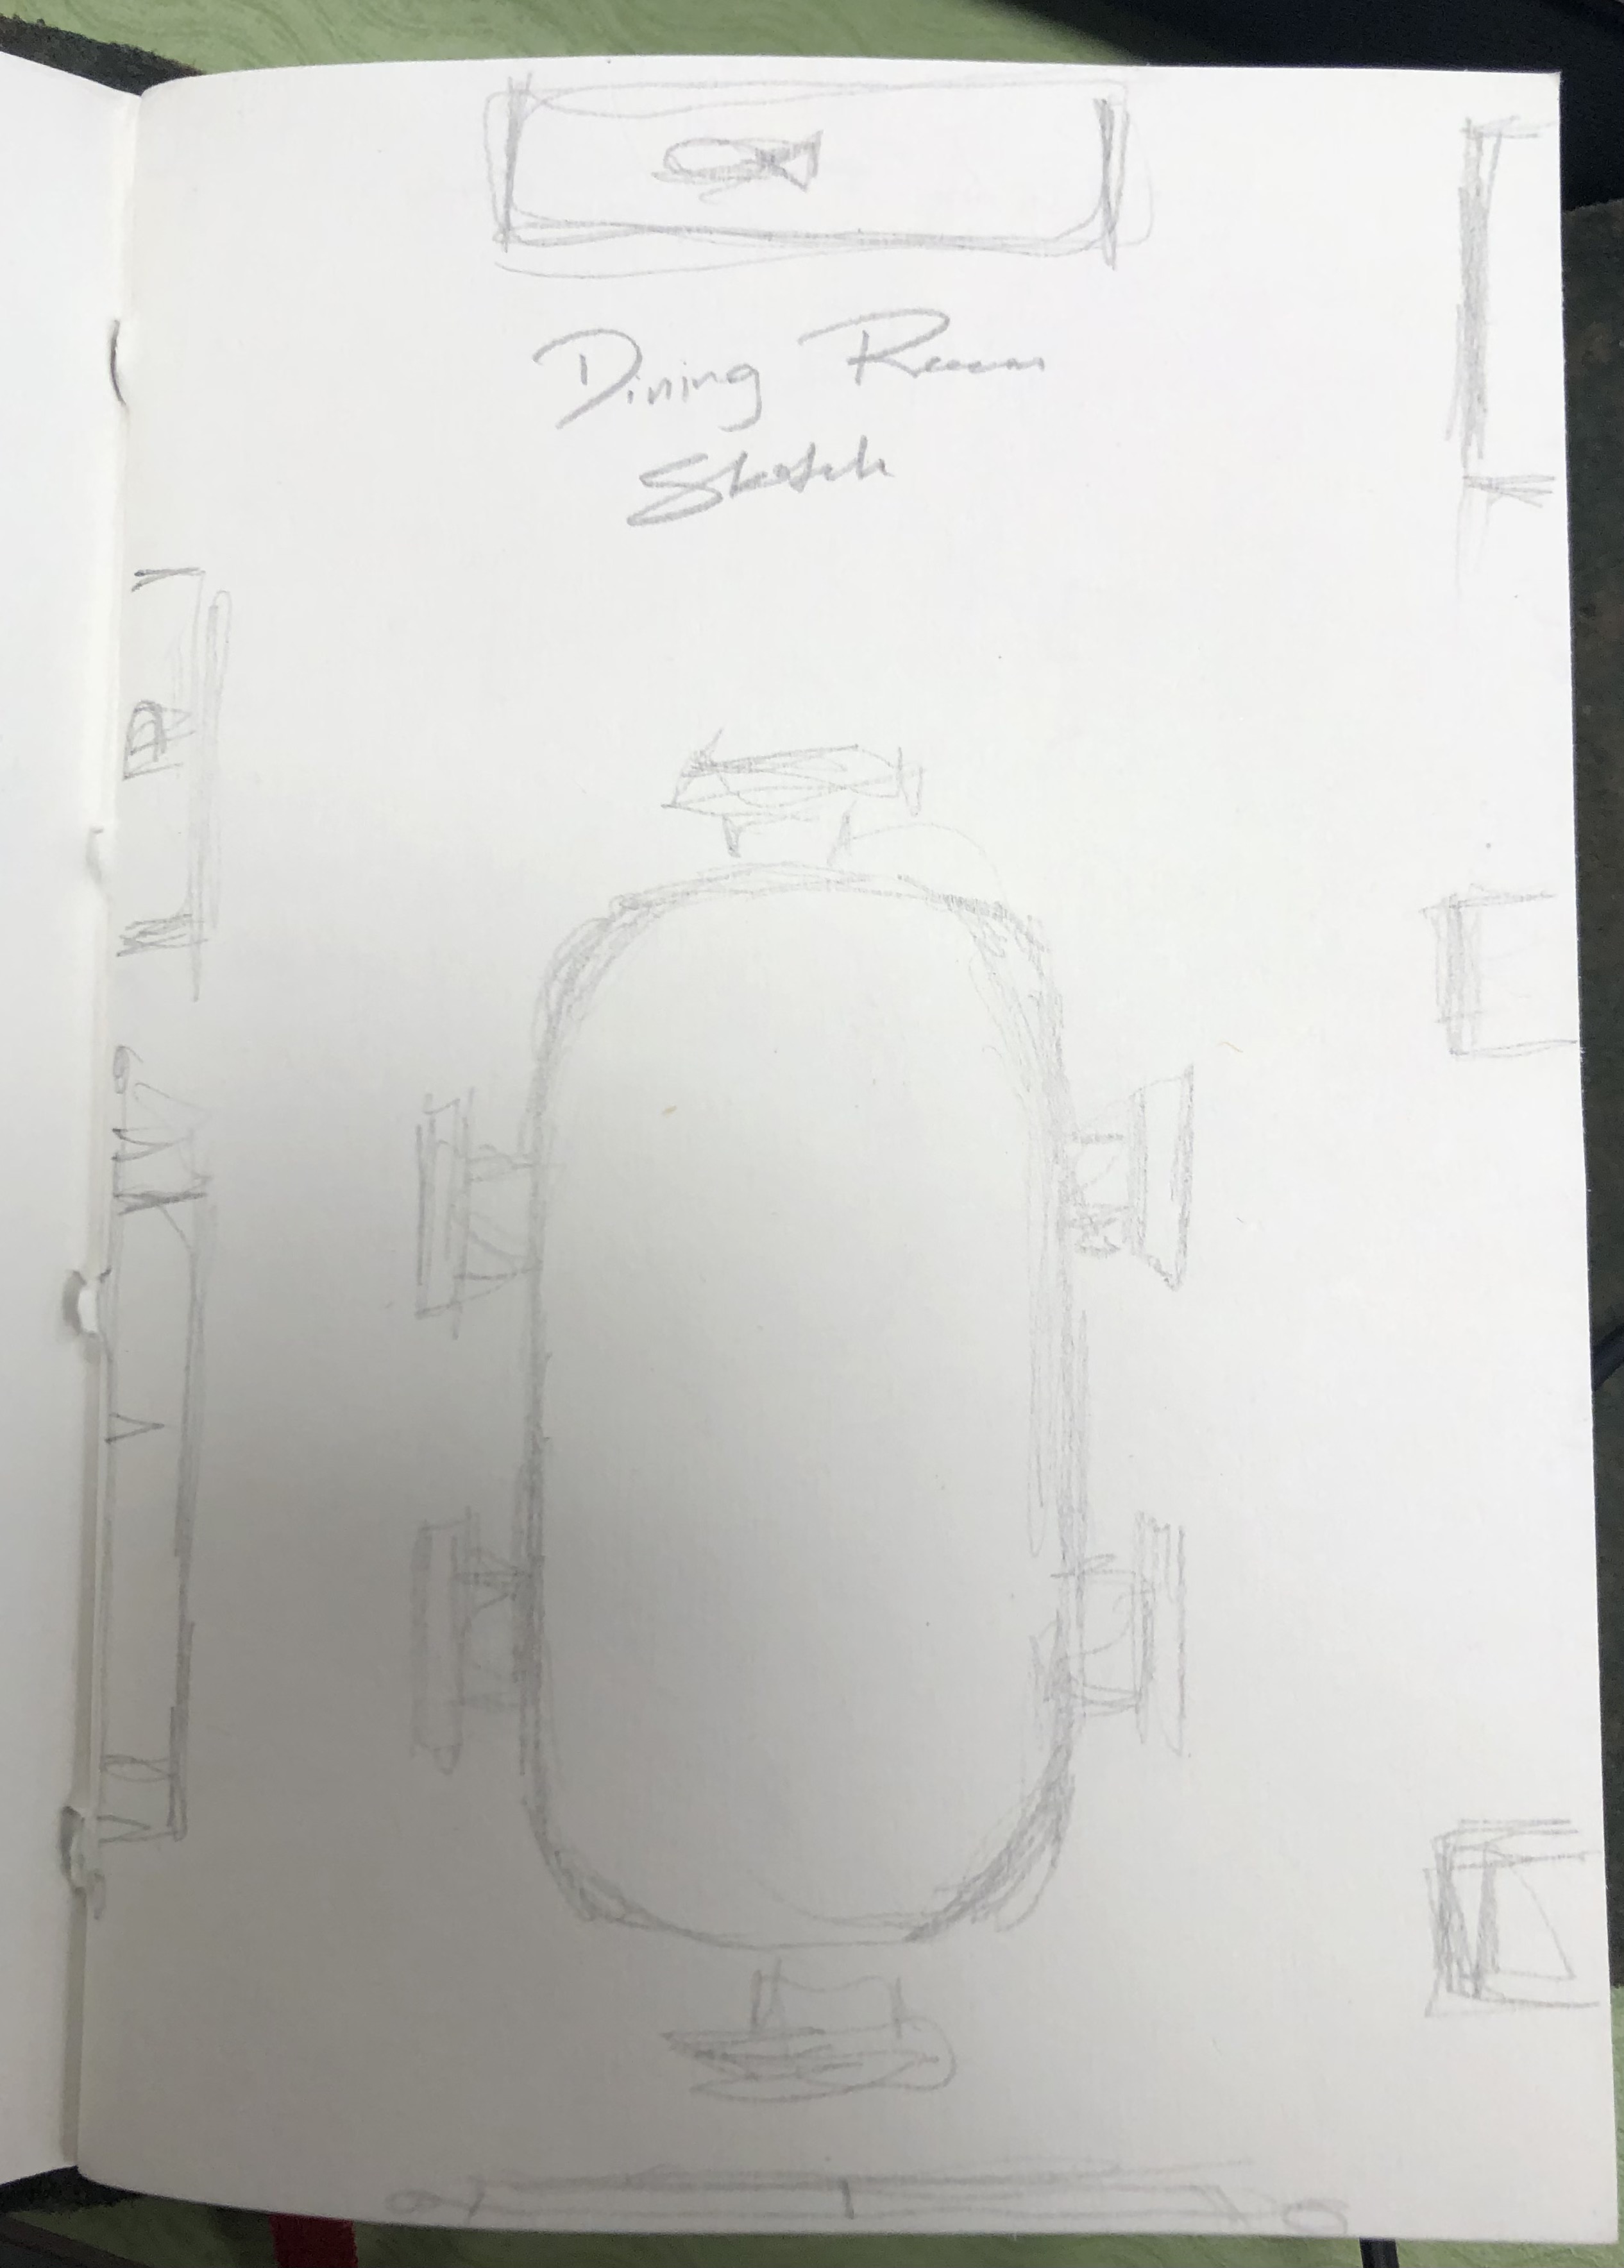 Dining Room
Sketch